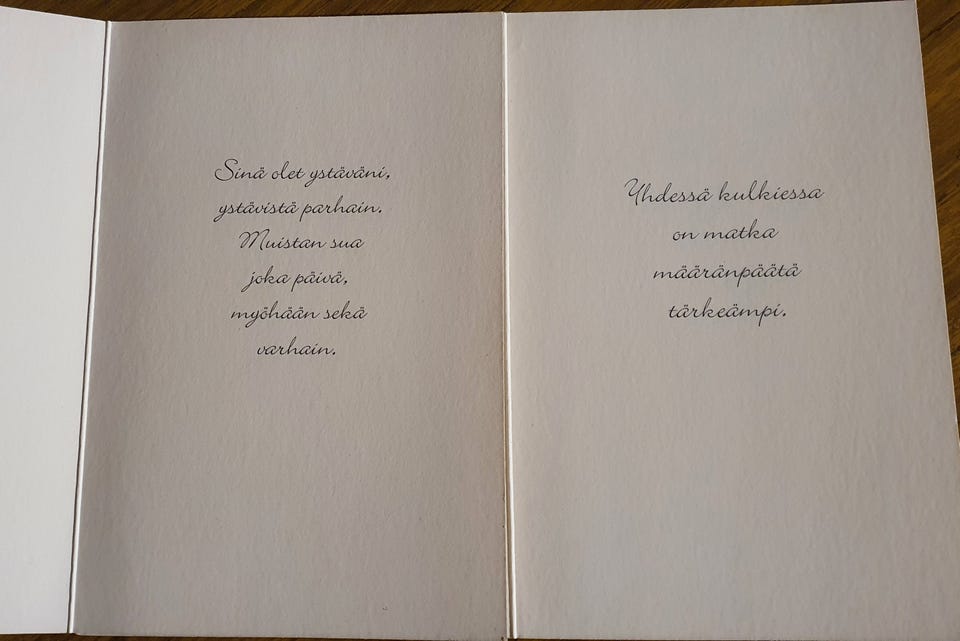 Sinä olet ystäväni,
ystävistä parhain.
Muistan sua
joka päivä,
myöhään sekä
varhain.
Yhdessä kulkiessa
on matka
määränpäätä
tärkeämpi.